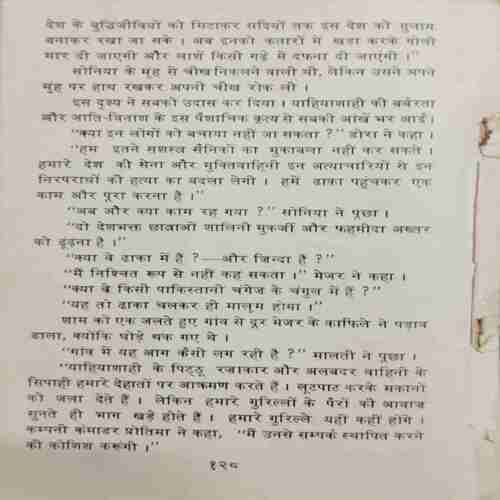 देश के बुद्धिजीवियों को मिटाकर सदियों तक इस देश को गुलाम
बनाकर रखा जा सके । अब इनको कतारों में खड़ा करके गोली
मार दी जाएगी और लाशें किसी गड्ढे में दफना दी जाएंगी ।"
सोनिया के मुंह से चीख निकलने वाली थी, लेकिन उसने अपने
मुंह पर हाथ रखकर अपनी चीख रोक ली ।
इस दृश्य ने सबको उदास कर दिया । याहियाशाही की बर्बरता
और जाति-विनाश के इस पैशाचिक कृत्य से सबकी आंखें भर आईं ।
"क्या इन लोगों को बचाया नहीं जा सकता ?" डोरा ने कहा ।
"हम इतने सशस्त्र सैनिकों का मुकाबला नहीं कर सकते ।
हमारे देश की सेना और मुक्तिवाहिनी इन अत्याचारियों से इन
निरपराधों की हत्या का बदला लेगी । हमें ढाका पहुंचकर एक
काम और पूरा करना है ।"
"अब और क्या काम रह गया ?" सोनिया ने पूछा ।
"दो देशभक्त छात्राओं शालिनी मुकर्जी और फहमीदा अख्तर
को ढूंढ़ना है ।"
"क्या वे ढाका में हैं ?—और ज़िन्दा हैं ?"
"मैं निश्चित रूप से नहीं कह सकता ।" मेजर ने कहा ।
"क्या वे किसी पाकिस्तानी चंगेज के चंगुल में हैं ?"
"यह तो ढाका चलकर ही मालूम होगा ।"
शाम को एक जलते हुए गांव से दूर मेजर के काफ़िले ने पड़ाव
डाला, क्योंकि घोड़े थक गए थे ।
"गांव में यह आग कैसी लग रही है ?" मालती ने पूछा ।
"याहियाशाही के पिट्ठू रजाकार और अलबदर वाहिनी के
सिपाही हमारे देहातों पर आक्रमण करते हैं । लूटपाट करके मकानों
को जला देते हैं । लेकिन हमारे गुरिल्लों के पैरों की आवाज
सुनते ही भाग खड़े होते हैं । हमारे गुरिल्ले यहीं कहीं होंगे ।
कम्पनी कमांडर प्रोतिमा ने कहा, "मैं उनसे सम्पर्क स्थापित करने
की कोशिश करूंगी ।"
१२८